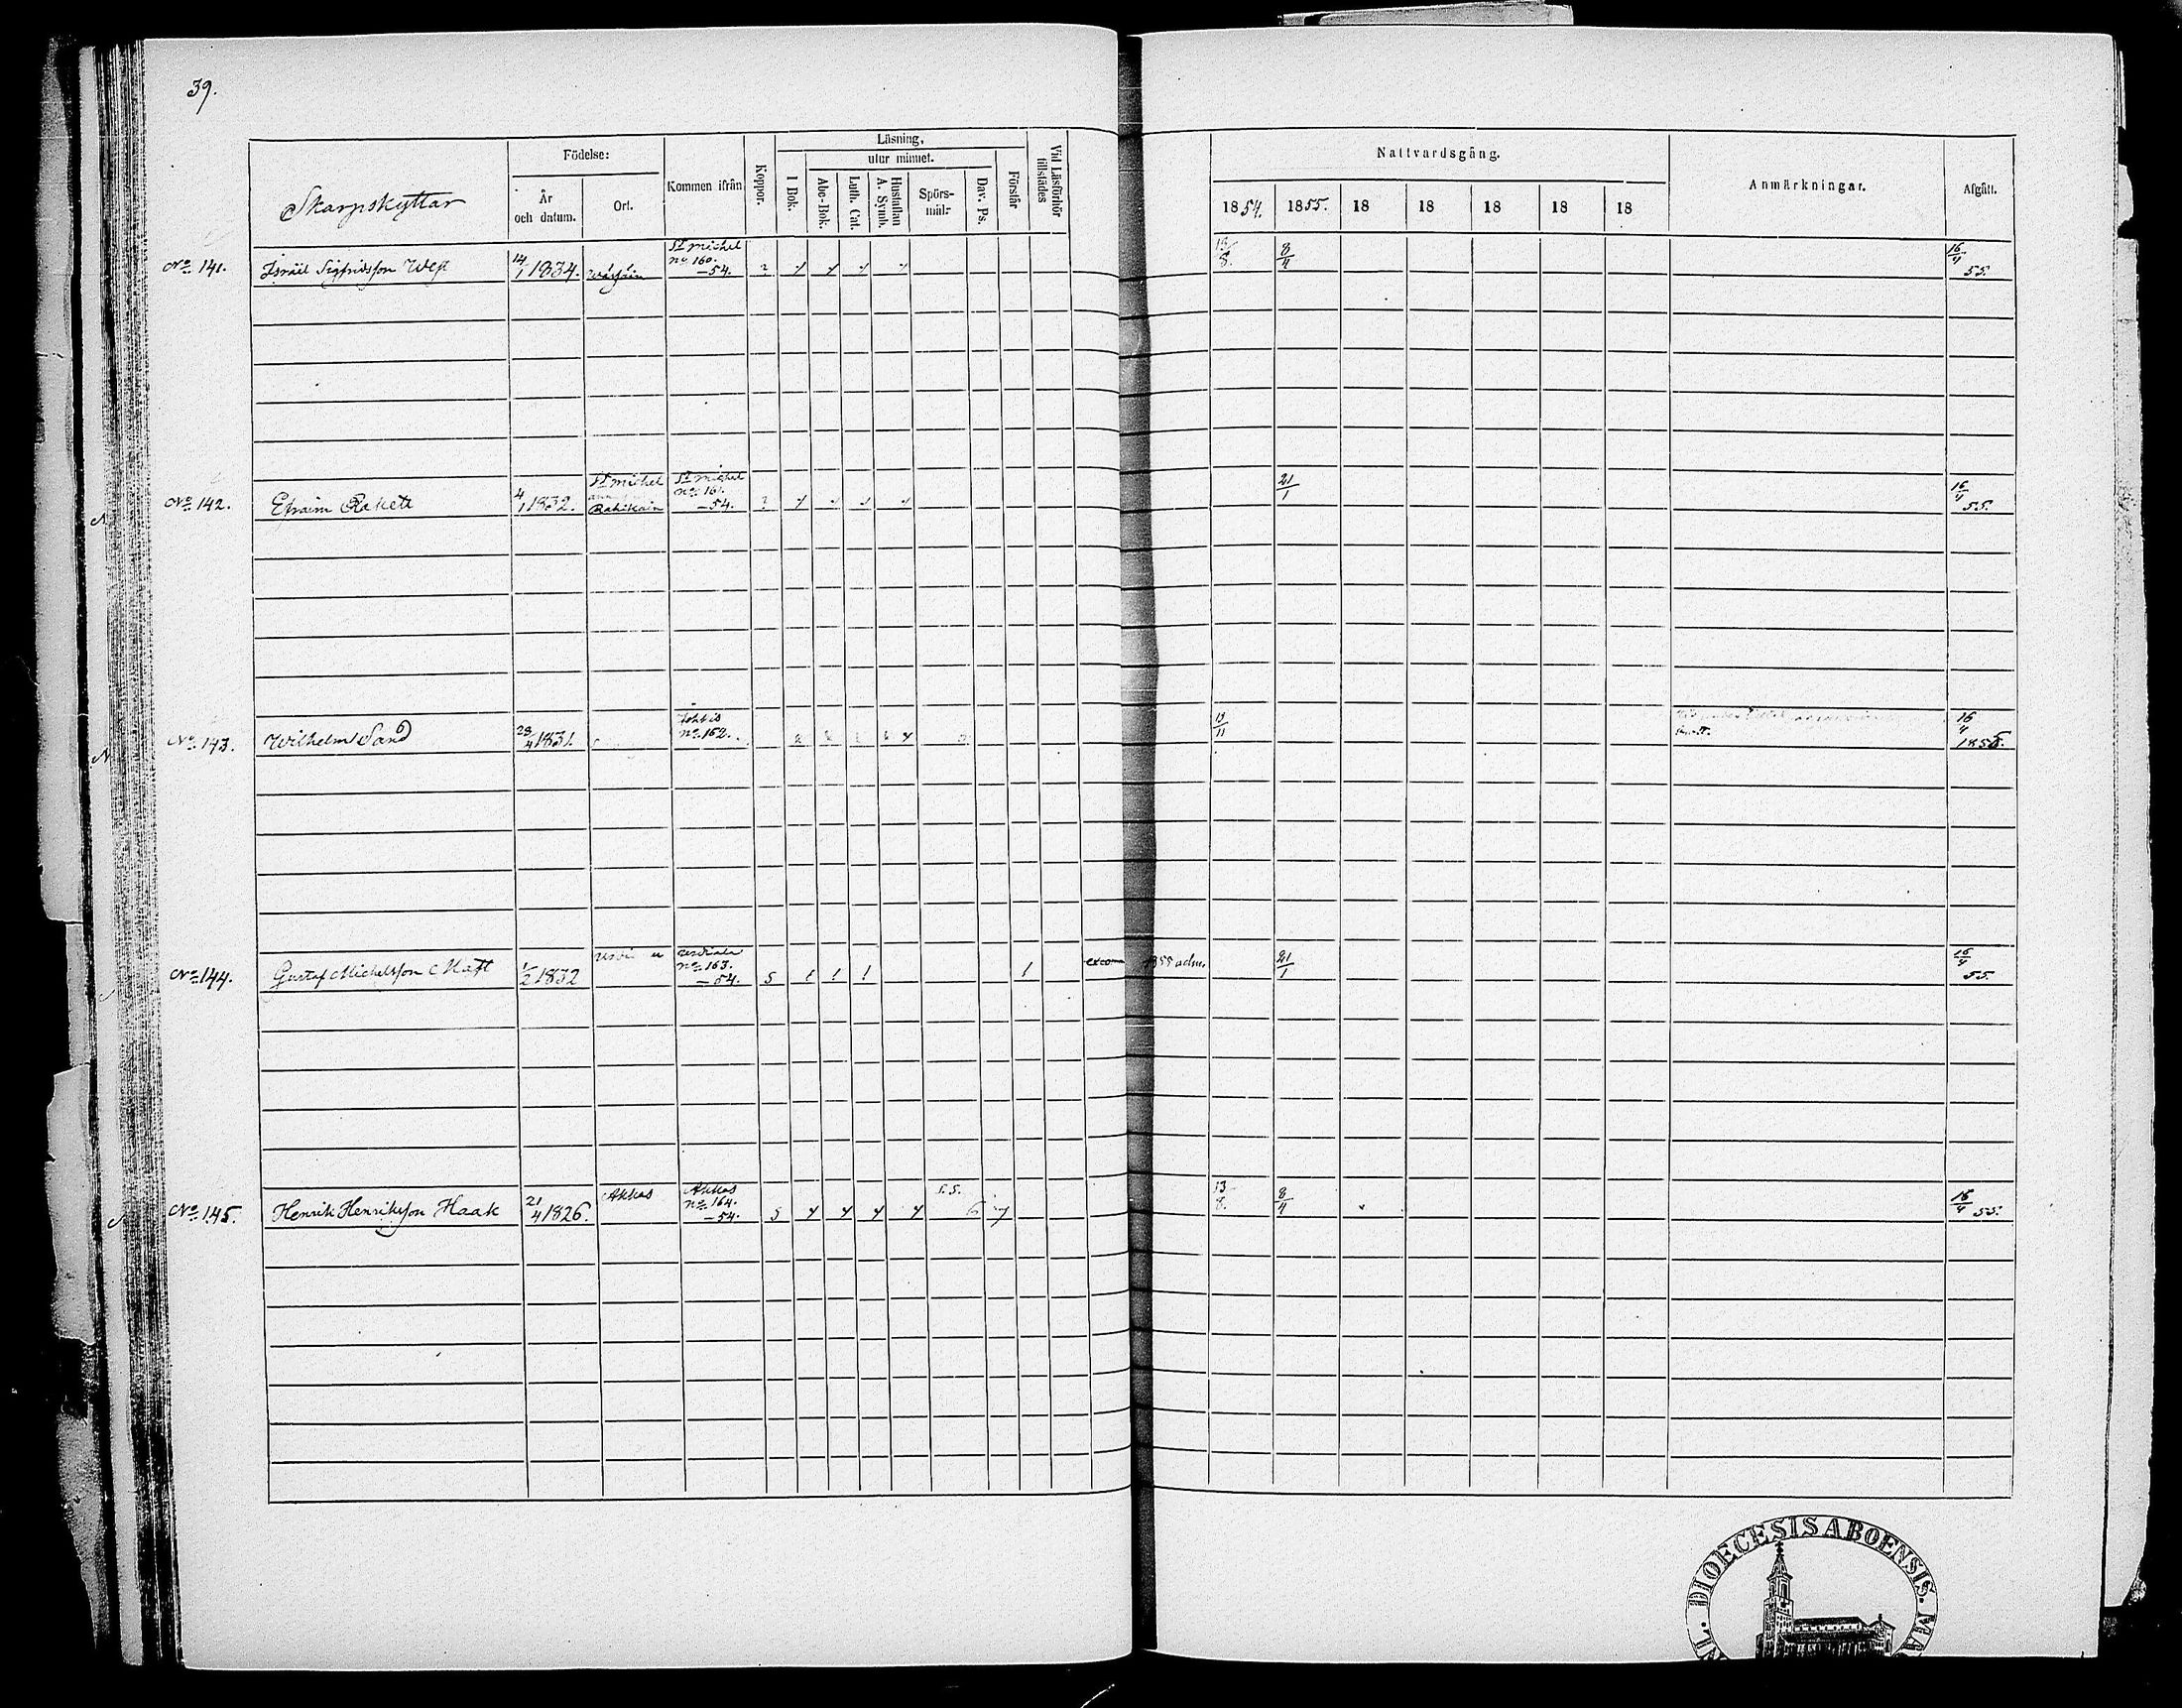 39.
Skarpskyttar
Födelse:
År och datum.
Ort.
Kommen ifrån
Koppor.
Läsning,
utur minnet.
I Bok.
Abc-Bok.
Luth. Cat.
Hustaflan A. Symb.
Spörs-mål:
Dav. Ps.
Förstår
Vid Läsförhör tillstädes
Nattvardsgång.
1854. 1855. 18 18 18 18 18
Anmärkningar.
Afgått.
No 141. Israël Sigfridsson West 14/1 1834. St Michel No 160. —54. 8/4 16/4 55.
No 142. Efraim Rakett 4/1 1832. St Michel St Michel No 161. —54. 21/1 16/4 55.
No 143. Wilhelm Sand 28/4 1831. No 162. 16/4
No 144. Gustaf Michelsson Mast 1/2 1832 No 163. —54. 5 1 1 1 1 excom 1855 adm. 21/1 16/4 55.
No 145. Henrik Henriksson Haak 21/4 1826. Akkas Akkas No 164. —54. 5 s.s. 13/8. 8/4 16/4 55.
DIOECESIS ABOENSIS. MA